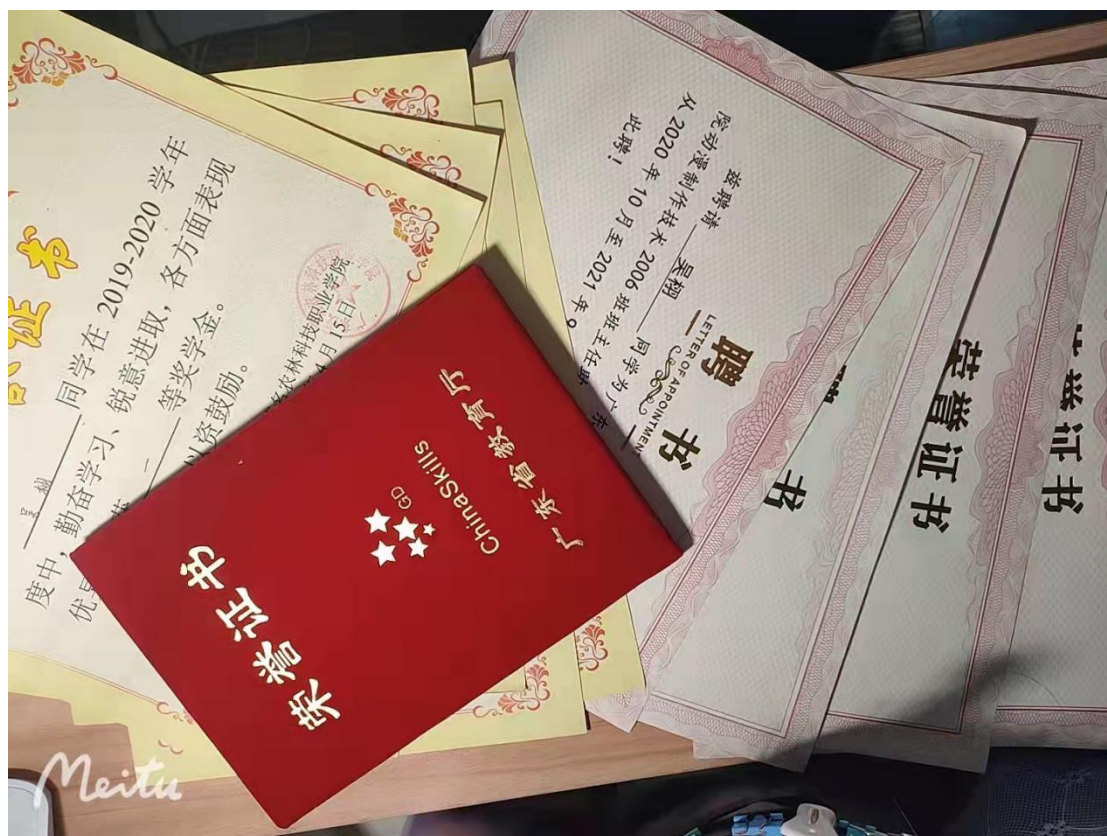 证书
同学在 2019-2020 学年
度中，勤奋学习、锐意进取，各方面表现
优
一 等奖学金。
以资鼓励。
农林科技职业学院
月 15日
荣誉证书
GD
ChinaSkills
广东省教育厅
聘书
LETTER OF APPOINTMENT
兹聘请 吴栩 同学为广东
院动漫制作技术 2006 班班主任助
从 2020 年 10 月至 2021 年 9
此聘！
书
荣誉证书
誉证书
Meitu